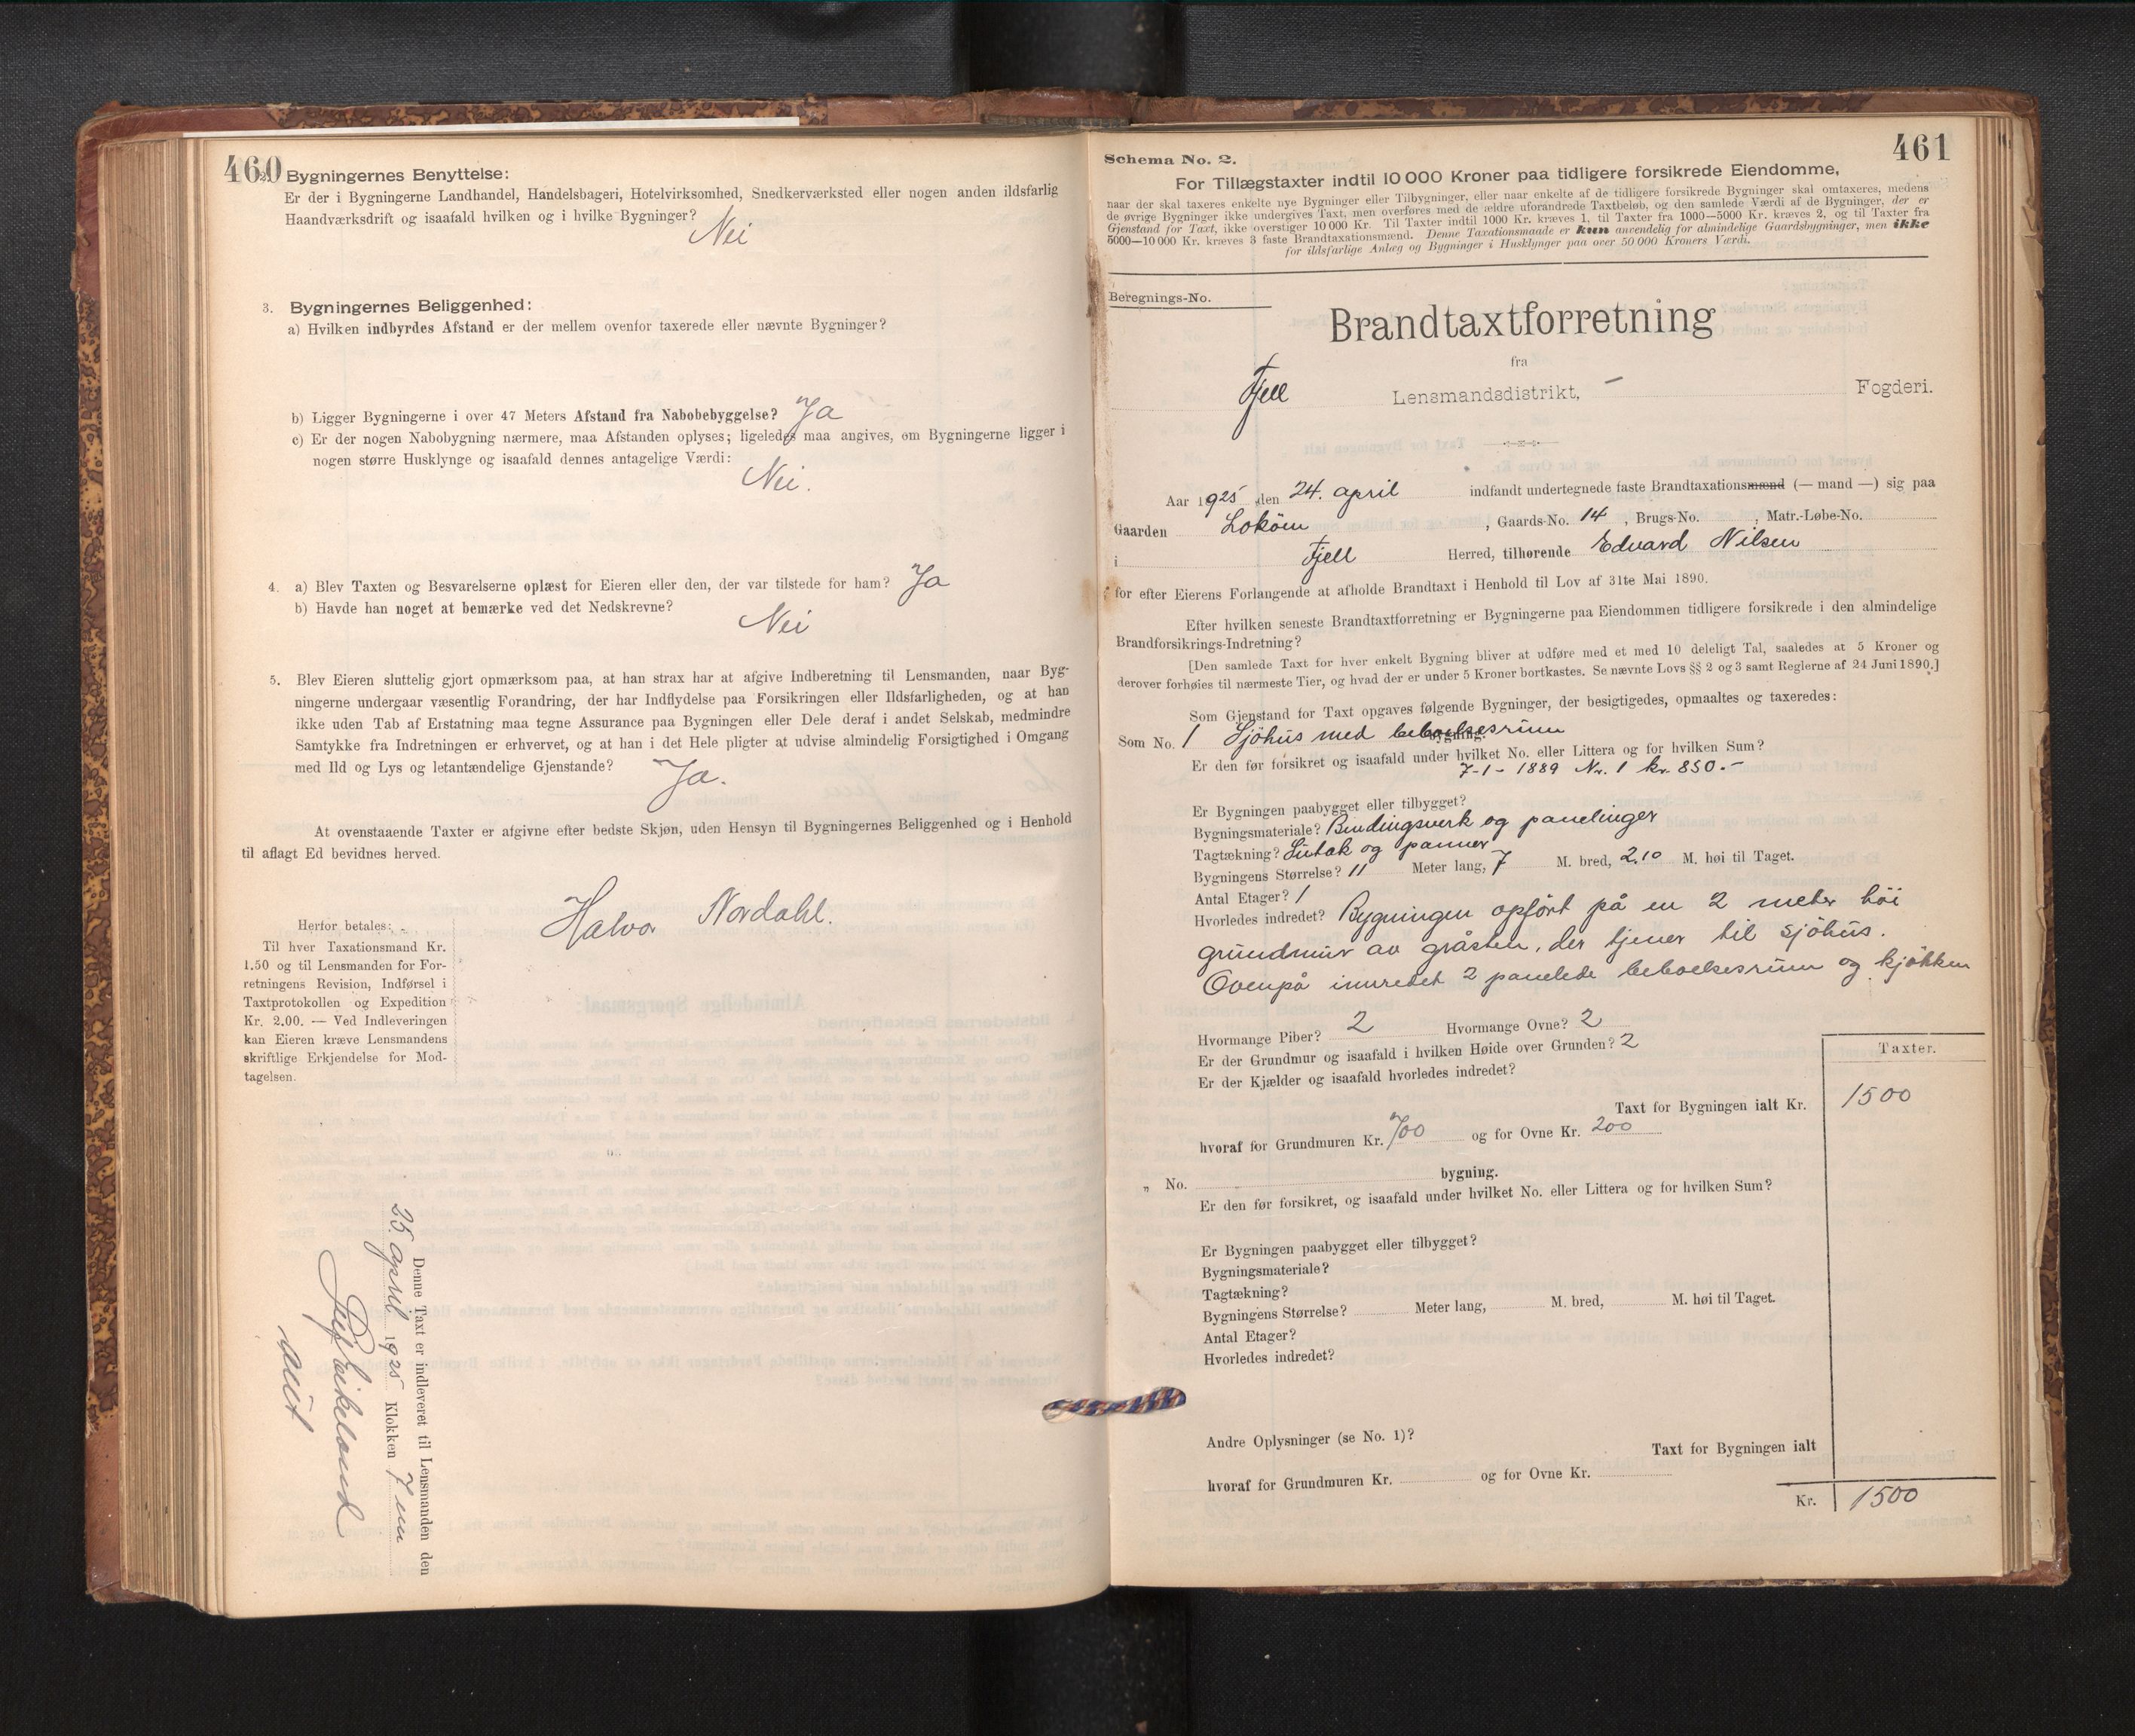 460
2. Bygningernes Benyttelse:
Er der i Bygningerne Landhandel, Handelsbageri, Hotelvirksomhed, Snedkerværksted eller nogen anden ildsfarlig
Haandværksdrift og isaafald hvilken og i hvilke Bygninger?
Nei
3. Bygningernes Beliggenhed:
a) Hvilken indbyrdes Afstand er der mellem ovenfor taxerede eller nævnte Bygninger?
b) Ligger Bygningerne i over 47 Meters Afstand fra Nabobebyggelse? Ja
c) Er der nogen Nabobygning nærmere, maa Afstanden oplyses; ligeledes maa angives, om Bygningerne ligger i
nogen større Husklynge og isaafald dennes antagelige Værdi:
Nei.
4. a) Blev Taxten og Besvarelserne oplæst for Eieren eller den, der var tilstede for ham? Ja
b) Havde han noget at bemærke ved det Nedskrevne?
Nei
5. Blev Eieren sluttelig gjort opmærksom paa, at han strax har at afgive Indberetning til Lensmanden, naar Byg-
ningerne undergaar væsentlig Forandring, der har Indflydelse paa Forsikringen eller Ildsfarligheden, og at han
ikke uden Tab af Erstatning maa tegne Assurance paa Bygningen eller Dele deraf i andet Selskab, medmindre
Samtykke fra Indretningen er erhvervet, og at han i det Hele pligter at udvise almindelig Forsigtighed i Omgang
med Ild og Lys og letantændelige Gjenstande? Ja.
At ovenstaaende Taxter er afgivne efter bedste Skjøn, uden Hensyn til Bygningernes Beliggenhed og i Henhold
til aflagt Ed bevidnes herved.
Halvor Nordahl.
Herfor betales:
Til hver Taxationsmand Kr.
1.50 og til Lensmanden for For-
retningens Revision, Indførsel i
Taxtprotokollen og Expedition
Kr. 2.00. — Ved Indleveringen
kan Eieren kræve Lensmandens
skriftlige Erkjendelse for Mod-
tagelsen.
Denne Taxt er indleveret til Lensmanden den
25. april 1925 Klokken 7 em
461
Schema No. 2.
For Tillægstaxter indtil 10 000 Kroner paa tidligere forsikrede Eiendomme,
naar der skal taxeres enkelte nye Bygninger eller Tilbygninger, eller naar enkelte af de tidligere forsikrede Bygninger skal omtaxeres, medens
de øvrige Bygninger ikke undergives Taxt, men overføres med de ældre uforandrede Taxtbeløb, og den samlede Værdi af de Bygninger, der er
Gjenstand for Taxt, ikke overstiger 10 000 Kr. Til Taxter indtil 1000 Kr. kræves 1, til Taxter fra 1000—5000 Kr. kræves 2, og til Taxter fra
5000—10 000 Kr. kræves 3 faste Brandtaxationsmænd. Denne Taxationsmaade er kun anvendelig for almindelige Gaardsbygninger, men ikke
for ildsfarlige Anlæg og Bygninger i Husklynger paa over 50 000 Kroners Værdi.
Beregnings-No.
Brandtaxtforretning
fra
Fjell Lensmandsdistrikt, — Fogderi.
Aar 1925 den 24. april indfandt undertegnede faste Brandtaxationsmænd (— mand —) sig paa
Gaarden Lokøin, Gaards-No. 14, Brugs-No. , Matr.-Løbe-No.
i Fjell Herred, tilhørende Edvard Nilsen
for efter Eierens Forlangende at afholde Brandtaxt i Henhold til Lov af 31te Mai 1890.
Efter hvilken seneste Brandtaxtforretning er Bygningerne paa Eiendommen tidligere forsikrede i den almindelige
Brandforsikrings-Indretning?
[Den samlede Taxt for hver enkelt Bygning bliver at udføre med et med 10 deleligt Tal, saaledes at 5 Kroner og
derover forhøies til nærmeste Tier, og hvad der er under 5 Kroner bortkastes. Se nævnte Lovs §§ 2 og 3 samt Reglerne af 24 Juni 1890.]
Som Gjenstand for Taxt opgaves følgende Bygninger, der besigtigedes, opmaaltes og taxeredes:
Som No. 1 Sjöhus med beboelsesrum bygning.
Er den før forsikret og isaafald under hvilket No. eller Littera og for hvilken Sum?
7-1- 1889 Nr. 1 kr. 850.-
Er Bygningen paabygget eller tilbygget?
Bygningsmateriale? Bindingsverk og panelinger
Tagtækning? Sutak og panner
Bygningens Størrelse? 11 Meter lang, 7 M. bred, 2.10 M. høi til Taget.
Antal Etager? 1
Hvorledes indredet? Bygningen opfört på en 2 meter höi
grundmur av gråsten, der tjener til sjöhus.
Ovenpå innredet 2 panelede beboelsesrum og kjökken
Hvormange Piber? 2 Hvormange Ovne? 2
Er der Grundmur og isaafald i hvilken Høide over Grunden? 2
Er der Kjælder og isaafald hvorledes indredet?
Taxter.
Taxt for Bygningen ialt Kr. 1500
hvoraf for Grundmuren Kr. 700 og for Ovne Kr. 200
„ No. bygning.
Er den før forsikret, og isaafald under hvilket No. eller Littera og for hvilken Sum?
Er Bygningen paabygget eller tilbygget?
Bygningsmateriale?
Tagtækning?
Bygningens Størrelse? Meter lang, M. bred, M. høi til Taget.
Antal Etager?
Hvorledes indredet?
Andre Oplysninger (se No. 1)?
Taxt for Bygningen ialt
hvoraf for Grundmuren Kr. og for Ovne Kr.
Kr. 1500